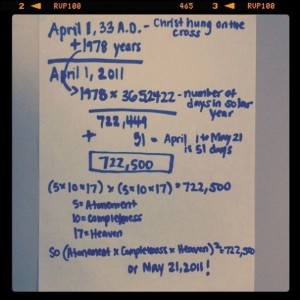 2 ◄ RVP100 465 3 ◄ RVP100
April 1, 33 A.D. - Christ hung on the cross
+1978 years
April 1, 2011
1978 x 365.2422 - number of days in solar year
722,449
+ 51 = April 1 to May 21 is 51 days
722,500
(5x10x17) x (5x10x17) = 722,500
5 = Atonement
10 = completeness
17 = Heaven
So (Atonement x Completeness x Heaven)² = 722,500
or May 21, 2011!